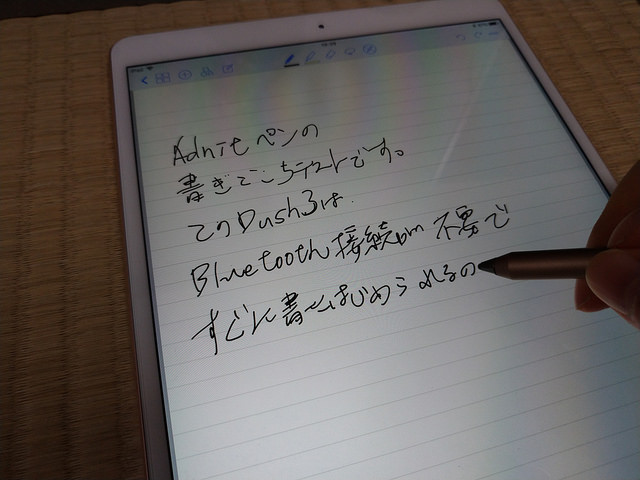 Adnitペンの
書きごこちテストです。
このDush3は
Bluetooth接続が不要で
すぐに書きはじめられるの